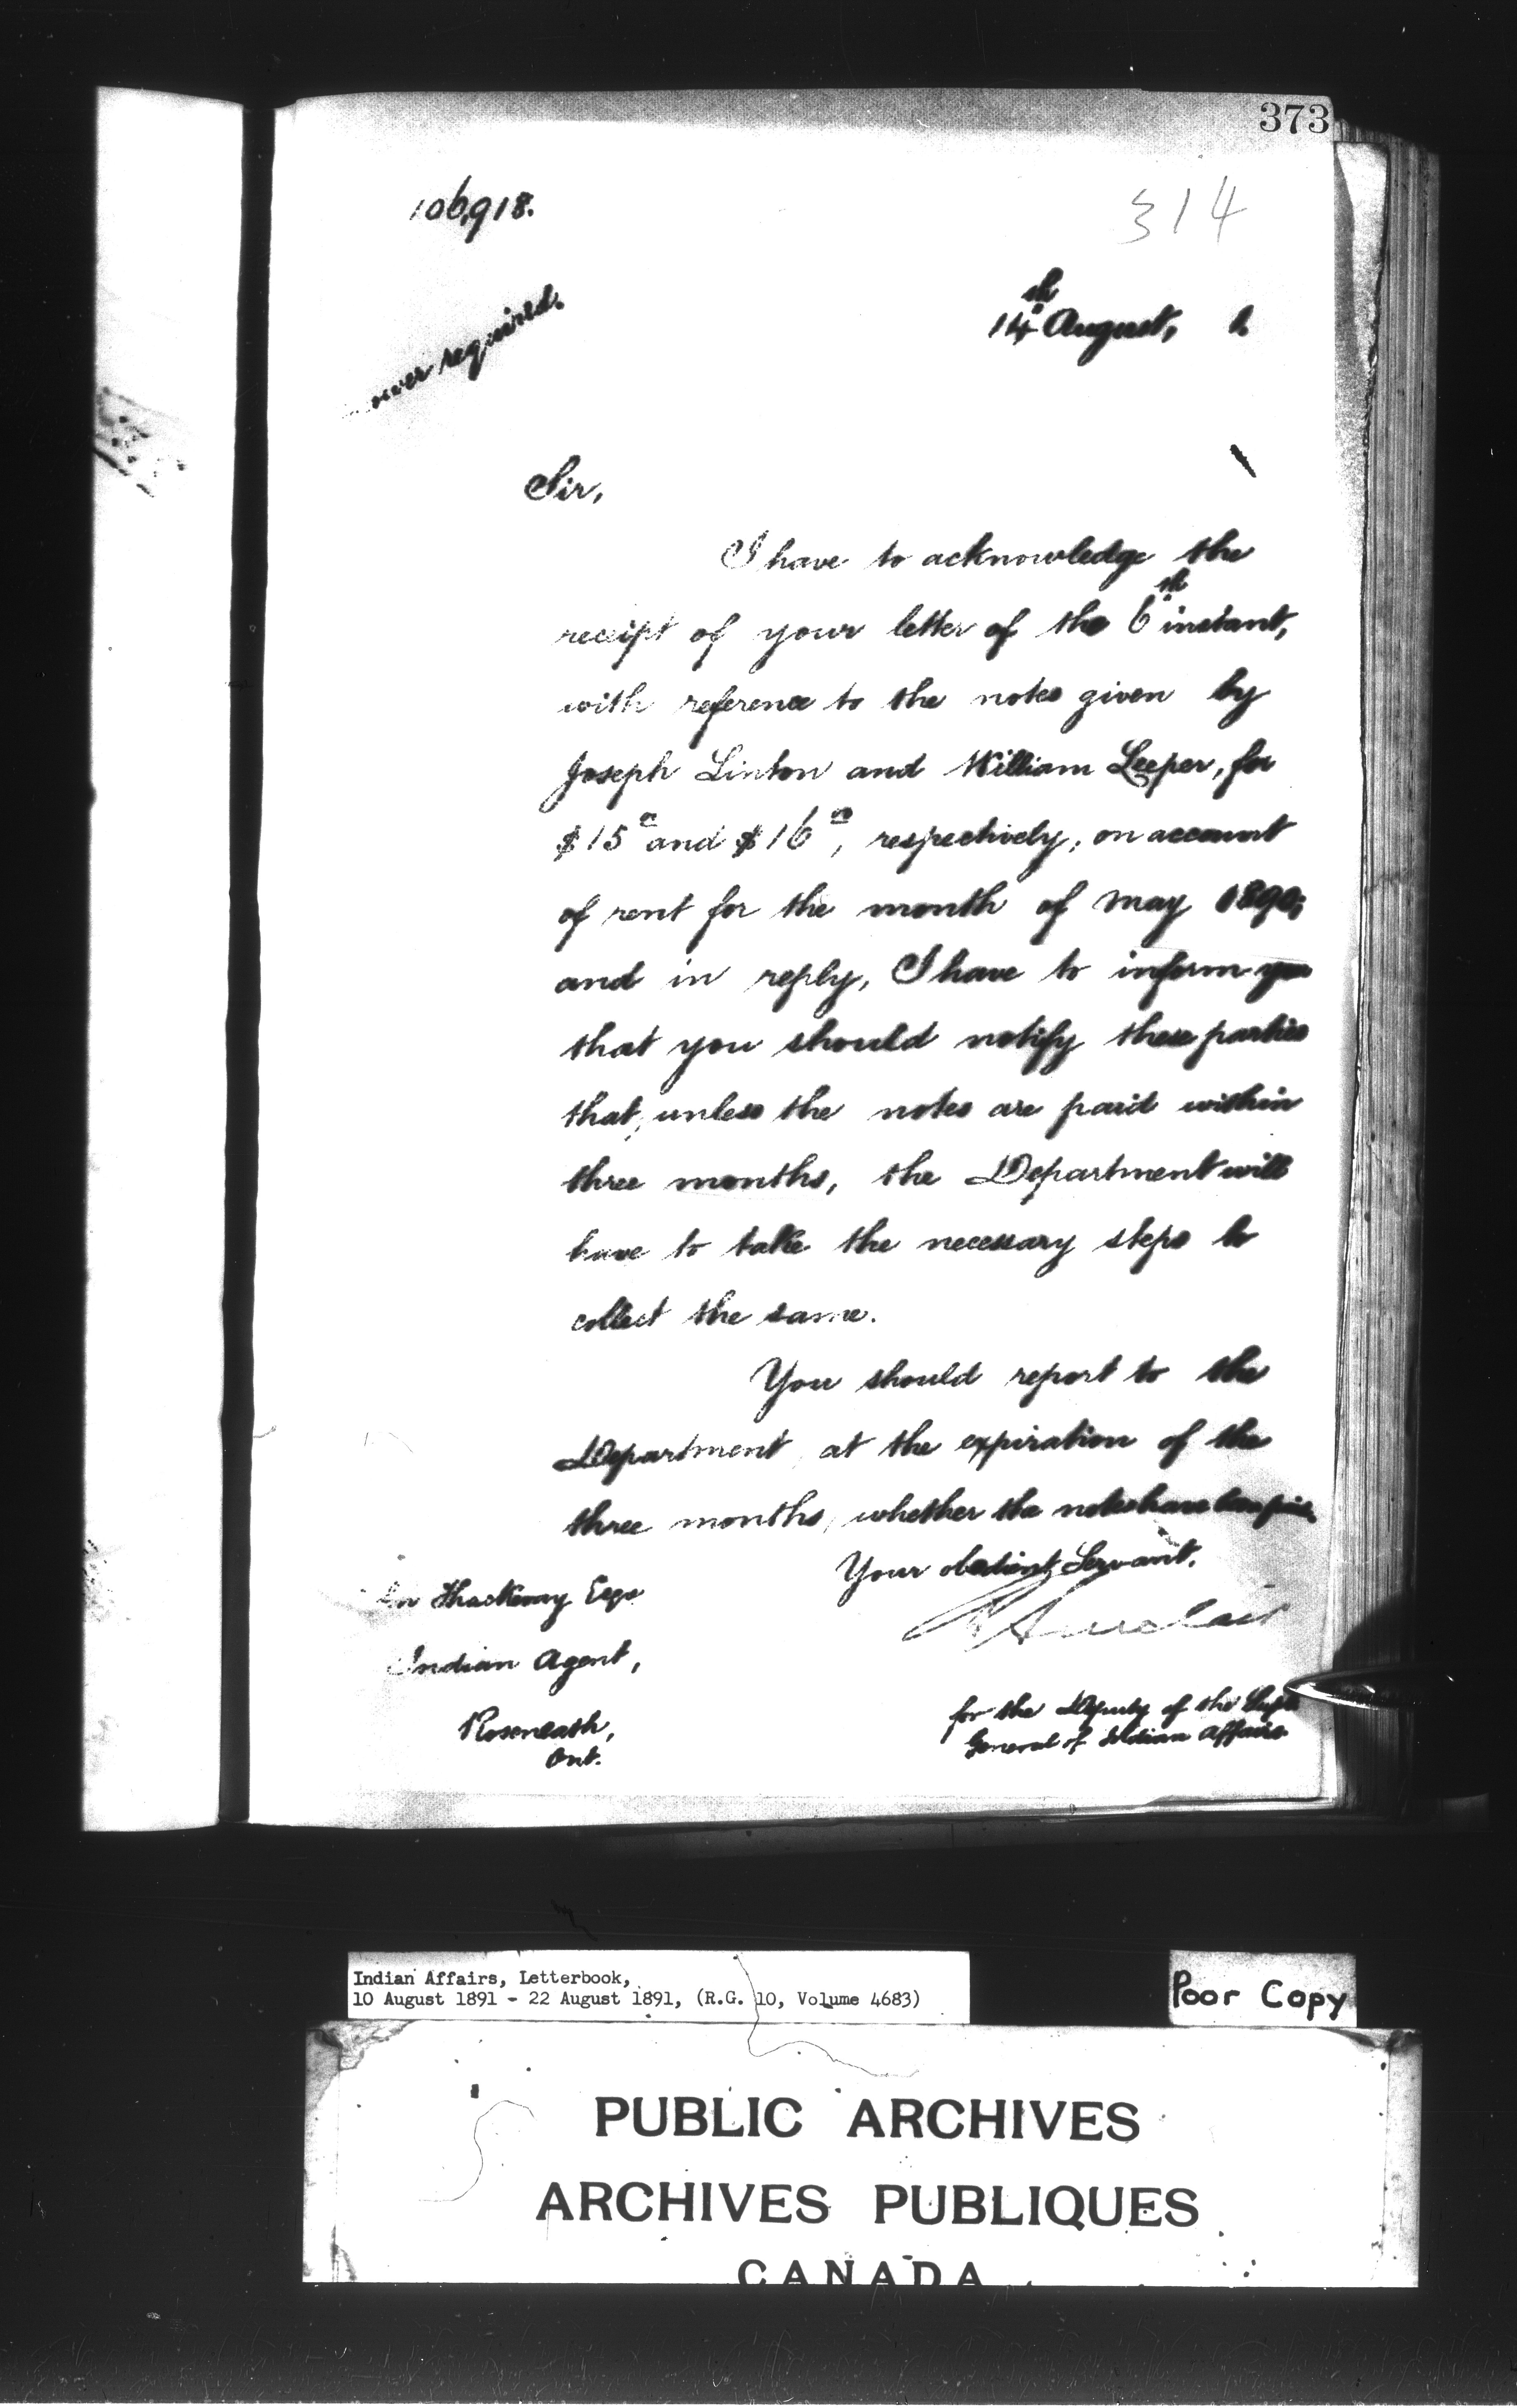 373
106,918.
314
14th August, 1.
required.
Sir,
I have to acknowledge the
receipt of your letter of the 6th instant,
with reference to the notes given by
Joseph Linton and William Leeper, for
$15 00 and $16 00, respectively, on account
of rent for the month of May 1890;
and in reply, I have to inform you
that you should notify these parties
that, unless the notes are paid within
three months, the Department will
have to take the necessary steps to
collect the same.
You should report to the
Department, at the expiration of the
three months, whether the notes have been paid.
Your obedient Servant,
Sinclair
Thackeray Esqr
Indian Agent,
Roseneath,
Ont.
for the Deputy of the Supt
General of Indian Affairs
Indian Affairs, Letterbook,
10 August 1891 - 22 August 1891, (R.G. 10, Volume 4683)
Poor Copy
PUBLIC ARCHIVES
ARCHIVES PUBLIQUES
CANADA